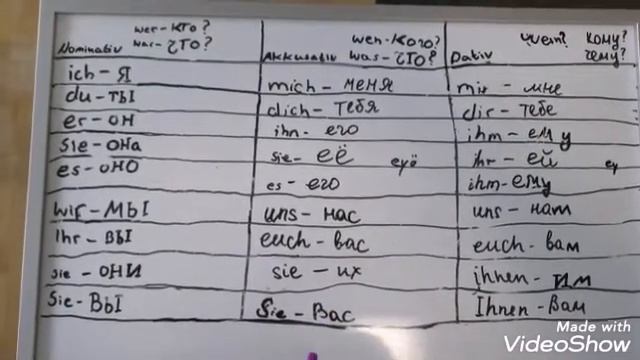 wer-кто?
Nominativ was-что?
wen-кого?
Akkusativ was-что?
wem? кому?
Dativ чему?
ich - я
mich - меня
mir - мне
du - ты
dich - тебя
dir - тебе
er - он
ihn - его
ihm - ему
sie - она
sie - её еуё
ihr - ей еу
es - оно
es - его
ihm - ему
wir - мы
uns - нас
uns - нам
Ihr - вы
euch - вас
euch - вам
sie - они
sie - их
ihnen - им
Sie - Вы
Sie - Вас
Ihnen - Вам
Made with
VideoShow